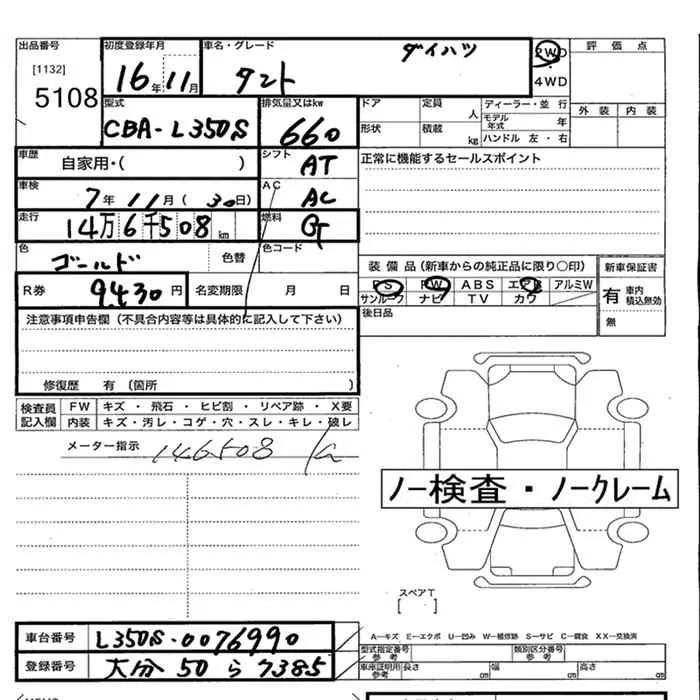 出品番号 初度登録年月 車名・グレード ダイハツ 2WD 評価点
[1132] 5108 16年 11月 タント 4WD 外装 内装
型式 排気量又はkw ドア 定員 人 ディーラー・並行
CBA-L350S 660 形状 積載 kg モデル年式 年 ハンドル 左・右
車歴 自家用・( ) シフト AT 正常に機能するセールスポイント
車検 7年 11月 ( 30日) AC AC
走行 14万6千508km 燃料 G
色 ゴールド 色替 色コード
装備品(新車からの純正品に限り〇印) 新車保証書
R券 9430円 名変期限 月 日 PS PW ABS エアB アルミW 有 車内 積込無効
サンルーフ ナビ TV カワ
注意事項申告欄(不具合内容等は具体的に記入して下さい) 後日品 無
修復歴 有 (箇所 )
検査員記入欄 FW キズ・飛石・ヒビ割・リペア跡・X要
内装 キズ・汚レ・コゲ・穴・スレ・キレ・破レ
メーター指示 146508
ノー検査・ノークレーム
スペアT
[ ]
車台番号 L350S-0076990 A―キズ E―エクボ U―凹み W―補修跡 S―サビ C―腐食 XX―交換済
登録番号 大分 50 ら 7385 型式指定番号 参考 類別区分番号 参考
車庫証明用 参考 長さ cm 幅 cm 高さ cm